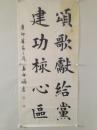 頌歌獻給黨
建功核心區